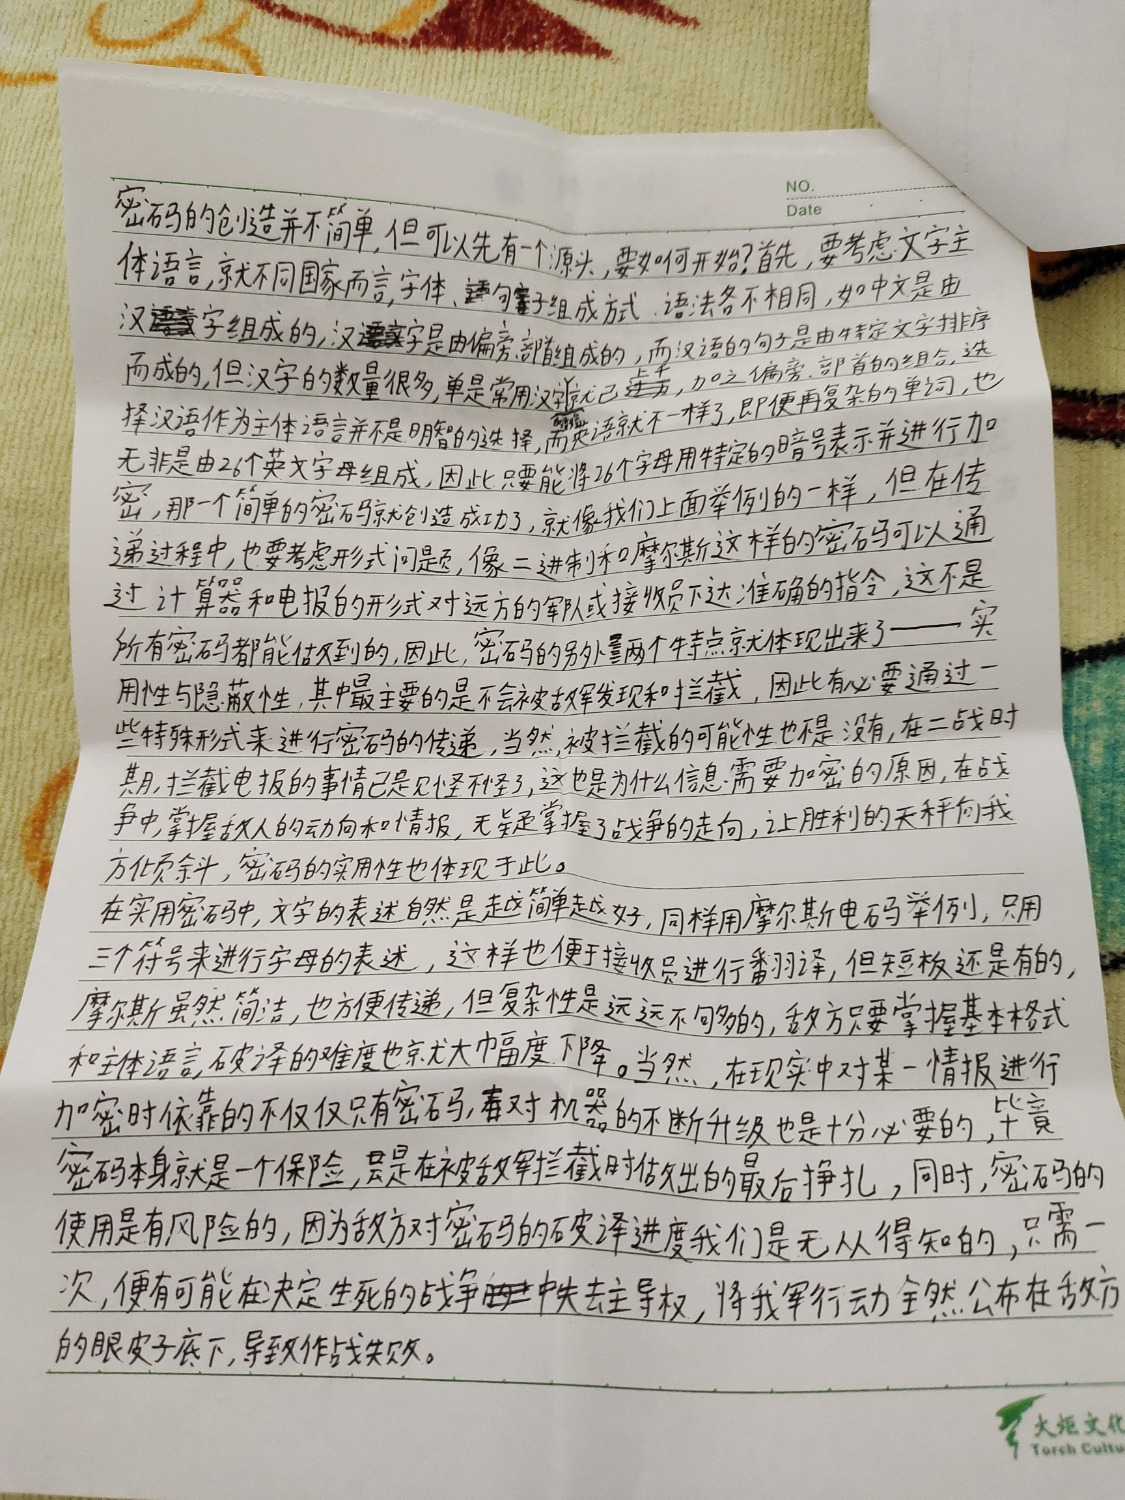 NO.
Date
密码的创造并不简单,但可以先有一个源头,要如何开始?首先,要考虑文字主
体语言,就不同国家而言,字体、语句子组成方式、语法各不相同,如中文是由
汉字组成的,汉字是由偏旁、部首组成的,而汉语的句子是由特定文字排序
而成的,但汉字的数量很多,单是常用汉字就已上千,加之偏旁、部首的组合,选
择汉语作为主体语言并不是明智的选择,而英语就不一样了,即便再复杂的单词,也
无非是由26个英文字母组成,因此只要能将26个字母用特定的暗号表示并进行加
密,那一个简单的密码就创造成功了,就像我们上面举例的一样,但在传
递过程中,也要考虑形式问题,像二进制和摩尔斯这样的密码可以通
过计算器和电报的形式对远方的军队或接收员下达准确的指令,这不是
所有密码都能做到的,因此,密码的另外两个特点就体现出来了——实
用性与隐蔽性,其中最主要的是不会被敌军发现和拦截,因此有必要通过一
些特殊形式来进行密码的传递,当然,被拦截的可能性也不是没有,在二战时
期,拦截电报的事情已是见怪不怪了,这也是为什么信息需要加密的原因,在战
争中,掌握敌人的动向和情报,无疑是掌握了战争的走向,让胜利的天秤向我
方倾斜,密码的实用性也体现于此。
在实用密码中,文字的表述自然是越简单越好,同样用摩尔斯电码举例,只用
三个符号来进行字母的表述,这样也便于接收员进行翻译,但短板还是有的,
摩尔斯虽然简洁,也方便传递,但复杂性是远远不够的,敌方只要掌握基本格式
和主体语言,破译的难度也就大幅度下降。当然,在现实中对某一情报进行
加密时依靠的不仅仅只有密码,对机器的不断升级也是十分必要的,毕竟
密码本身就是一个保险,是在被敌军拦截时做出的最后挣扎,同时,密码的
使用是有风险的,因为敌方对密码的破译进度我们是无从得知的,只需一
次,便有可能在决定生死的战争中失去主导权,将我军行动全然公布在敌方
的眼皮子底下,导致作战失败。
火炬文化
Torch Cultu